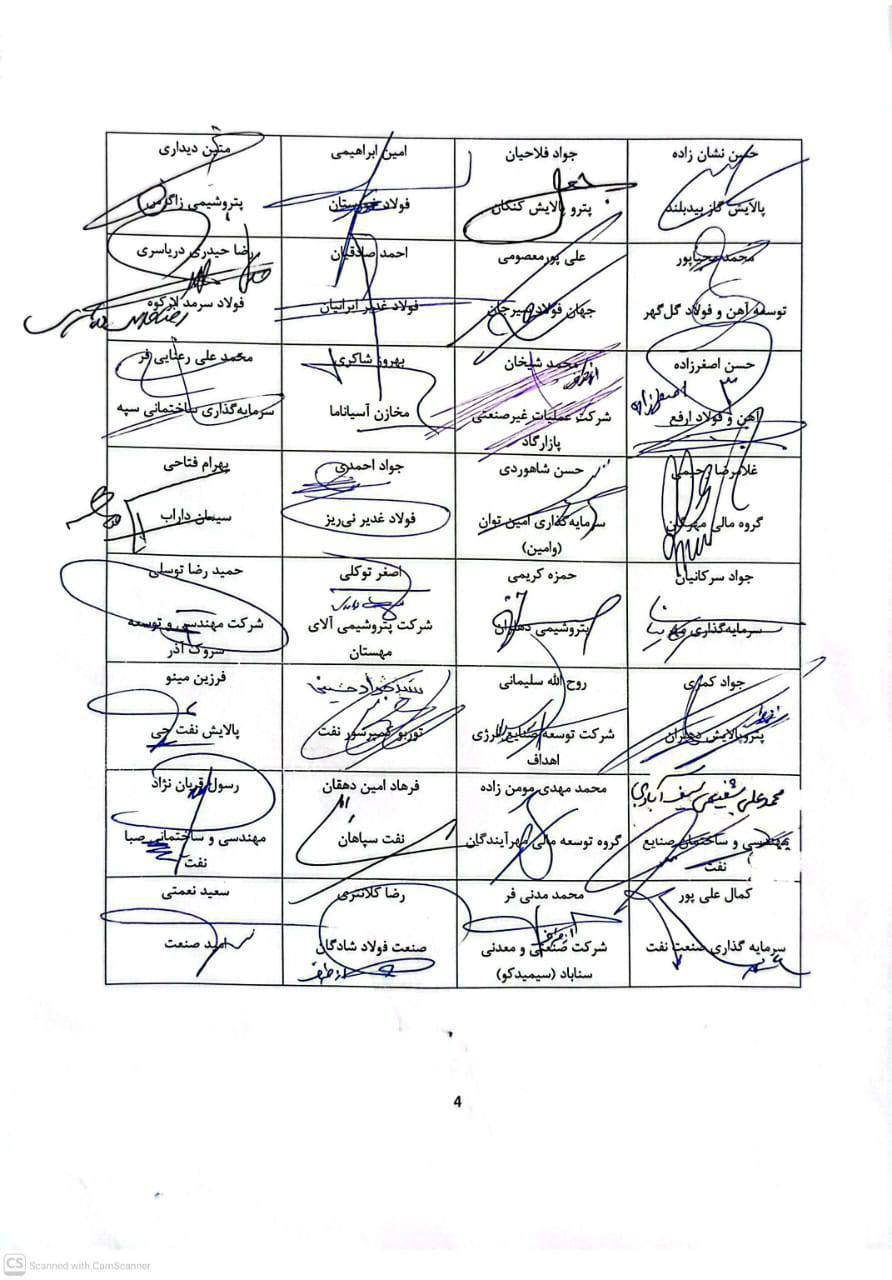 حسن نشان زاده
پالایش گاز بیدبلند
جواد فلاحیان
پترو پالایش کنگان
امین ابراهیمی
فولاد خوزستان
متین دیداری
پتروشیمی زاگرس
محمد محیاپور
توسعه آهن و فولاد گل‌گهر
علی پورمعصومی
جهان فولاد سیرجان
احمد صادقیان
فولاد غدیر ایرانیان
رضا حیدری دریاسری
فولاد سرمد ابرکوه
حسن اصغرزاده
آهن و فولاد ارفع
محمد شیخان
از طرف
شرکت عملیات غیرصنعتی
پازارگاد
بهروز شاکری
مخازن آسیاناما
محمد علی رعنایی فر
سرمایه‌گذاری ساختمانی سپه
غلامرضا رحیمی
گروه مالی مهرگان
حسن شاهوردی
سرمایه‌گذاری امین توان
(وامین)
جواد احمدی
فولاد غدیر نی‌ریز
بهرام فتاحی
سیمان داراب
جواد سرکانیان
سرمایه‌گذاری
حمزه کریمی
پتروشیمی دهلران
اصغر توکلی
شرکت پتروشیمی آلای
مهستان
حمید رضا توسلی
شرکت مهندسی و توسعه
سروک آذر
جواد کمری
پتروپالایش دهلران
روح الله سلیمانی
شرکت توسعه صنایع انرژی
اهداف
توربو کمپرسور نفت
فرزین مینو
پالایش نفت جی
محمدعلی شفیعی سیف آبادی
مهندسی و ساختمان صنایع
نفت
محمد مهدی مومن زاده
گروه توسعه مالی مهرآیندگان
فرهاد امین دهقان
نفت سپاهان
رسول قربان نژاد
مهندسی و ساختمانی صبا
نفت
کمال علی پور
سرمایه گذاری صنعت نفت
محمد مدنی فر
از طرف
شرکت صنعتی و معدنی
سناباد (سیمیدکو)
رضا کلانتری
صنعت فولاد شادگان
از طرف
سعید نعمتی
امید صنعت
4
CS Scanned with CamScanner